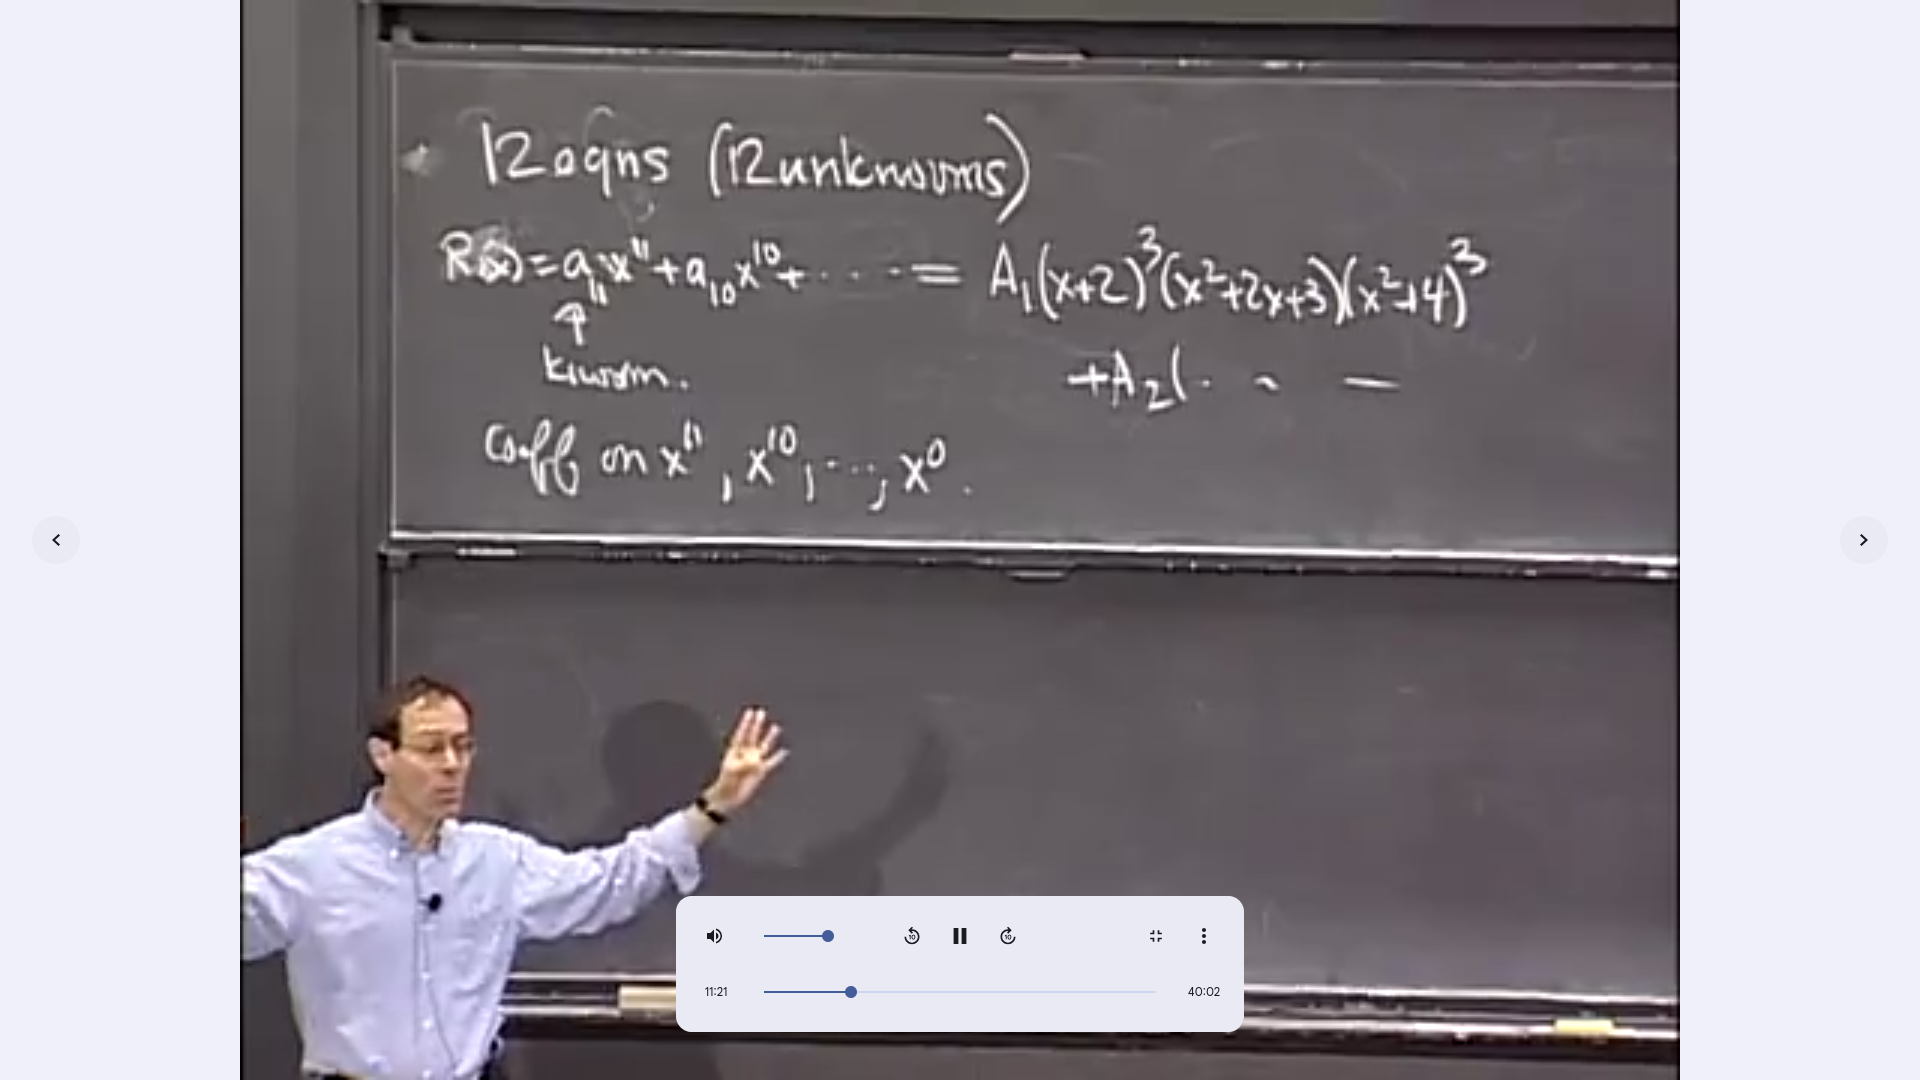 12 eqns (12 unknowns)
R(x) = a₁₁x¹¹ + a₁₀x¹⁰ + · · · · = A₁(x+2)³(x²+2x+3)(x²+4)³
↑
known.
+A₂( · ~ —
Coeff on x¹¹, x¹⁰, ..., x⁰.
10
10
11:21
40:02